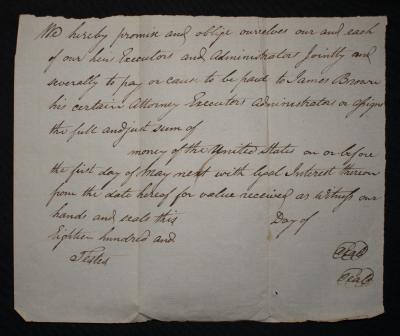 We hereby promise and oblige ourselves our and each
of our heirs Executors and Administrators Jointly and
severally to pay or cause to be paid to James Brown
his certain Attorney Executors Administrators or assigns
the full and just sum of
money of the United States on or before
the first day of May next with legal Interest thereon
from the date hereof for value received as witness our
hands and seals this Day of
Eighteen hundred and
Testes
Seal
Seal